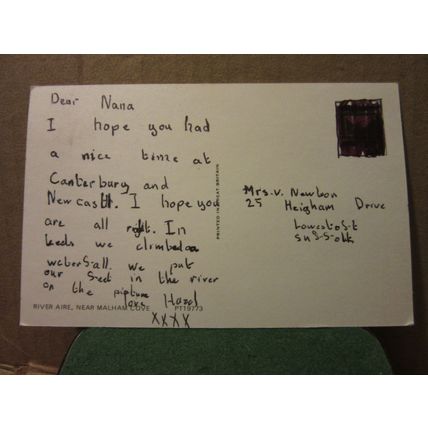 Dear Nana
I hope you had
a nice time at
Canterbury and
Newcastlt. I hope you
are all right. In
leeds we climbed a
waterfall. we put
our feet in the river
on the pipture
love Hazel
xxxx
RIVER AIRE, NEAR MALHAM COVE PT19773
PRINTED IN GREAT BRITAIN
Mrs. V. Newton
25 Heigham Drive
Lowestoft
Suffolk